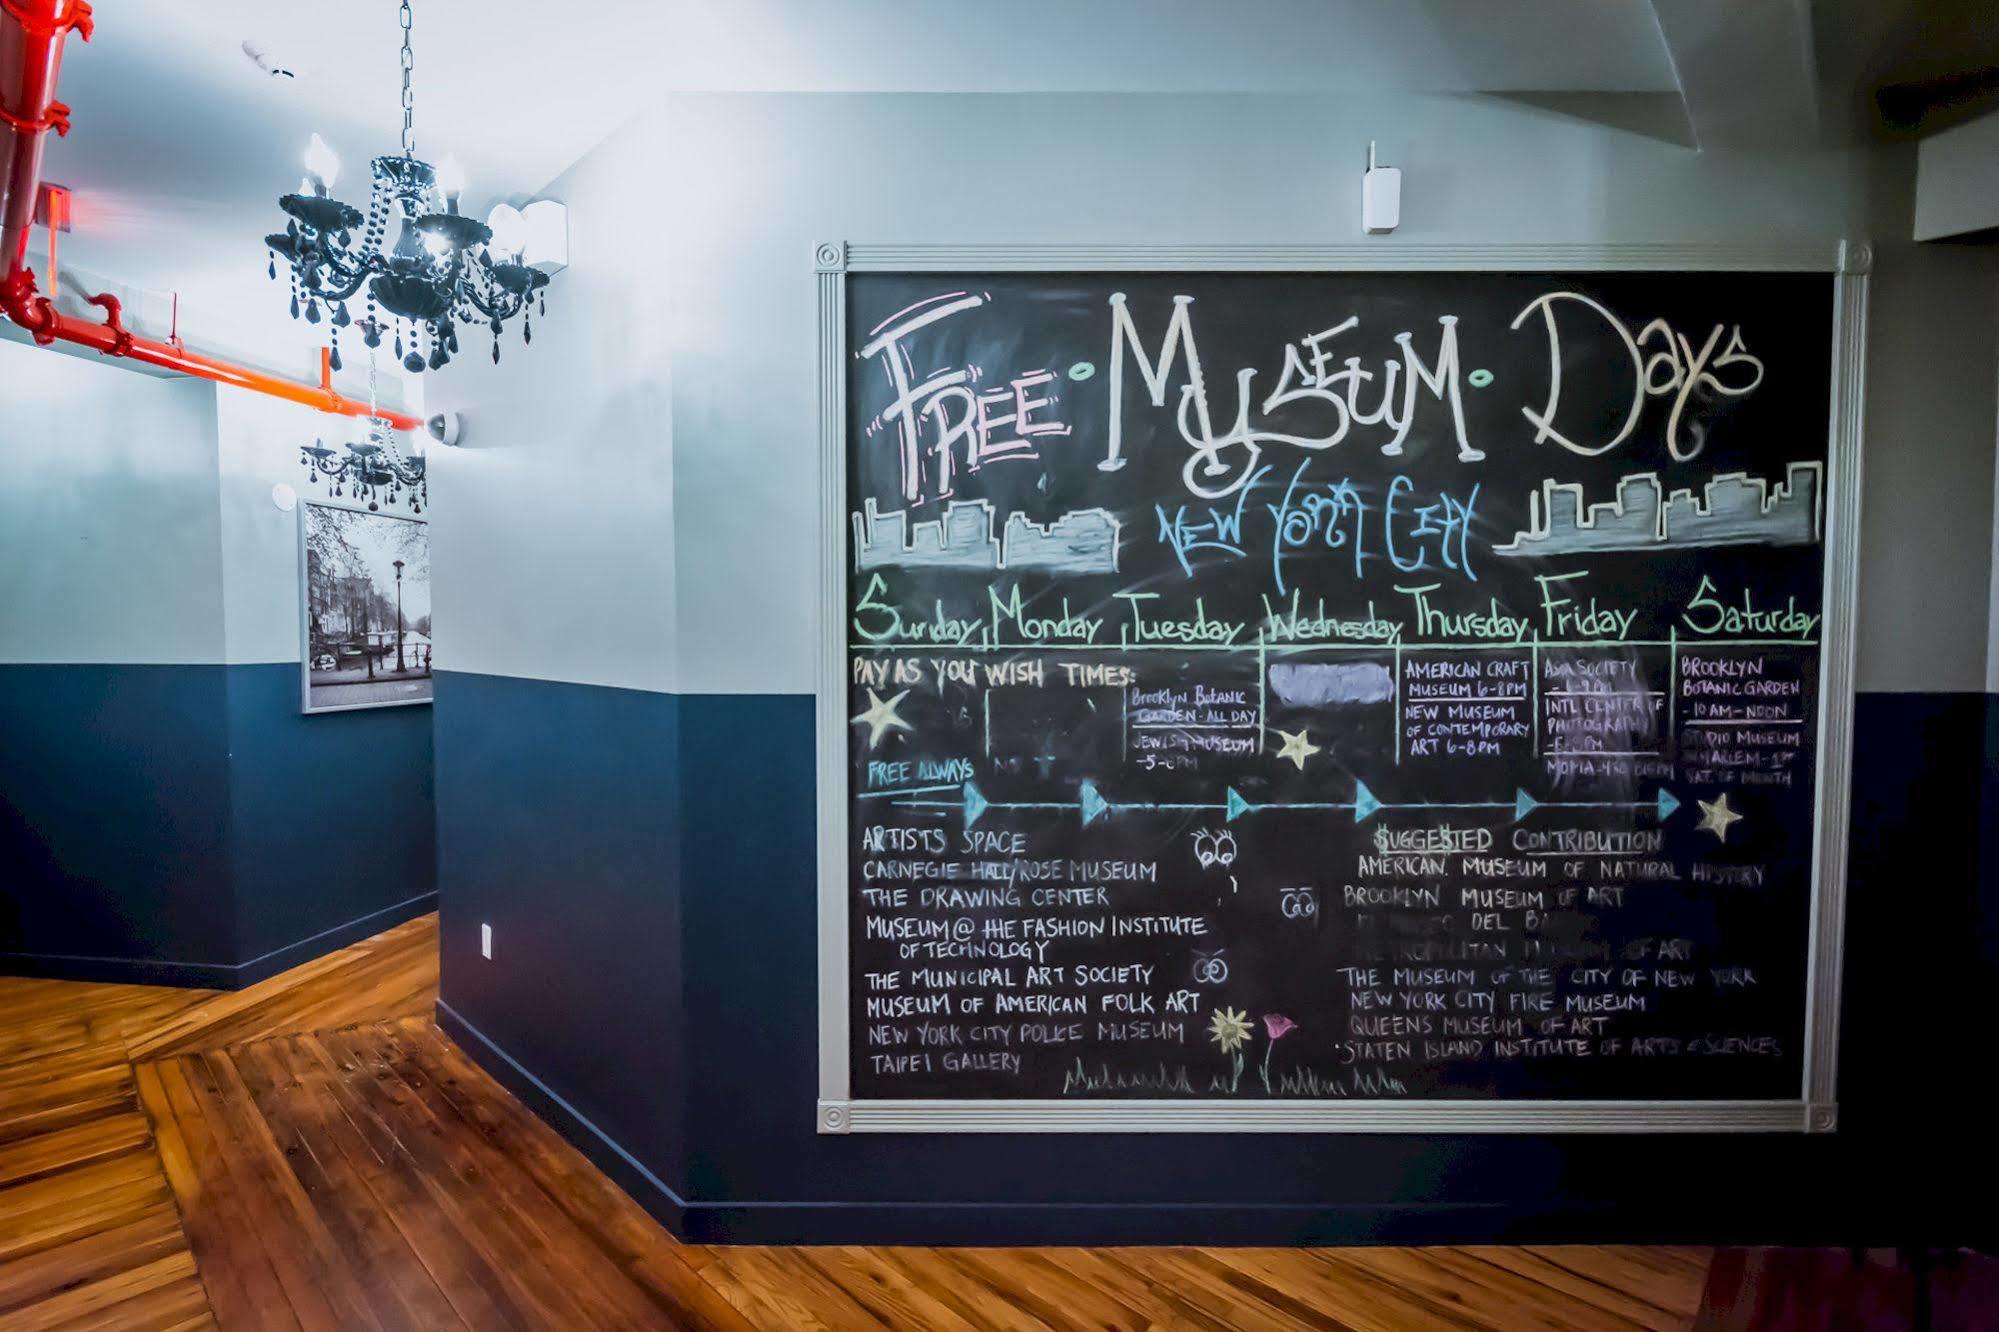 FREE · MUSEUM · DAYS
NEW YORK CITY
Sunday Monday Tuesday Wednesday Thursday Friday Saturday
PAY AS YOU WISH TIMES:
BROOKLYN BOTANIC
GARDEN - ALL DAY
JEWISH MUSEUM
AMERICAN CRAFT
MUSEUM 6-8PM
NEW MUSEUM
OF CONTEMPORARY
ART 6-8PM
ASIA SOCIETY
INT'L CENTER OF
PHOTOGRAPHY
BROOKLYN
BOTANIC GARDEN
- 10 AM - NOON
MUSEUM
SAT. OF MONTH
FREE ALWAYS
ARTISTS SPACE
CARNEGIE HALL/ROSE MUSEUM
THE DRAWING CENTER
MUSEUM @ THE FASHION INSTITUTE
OF TECHNOLOGY
THE MUNICIPAL ART SOCIETY
MUSEUM OF AMERICAN FOLK ART
NEW YORK CITY POLICE MUSEUM
TAIPEI GALLERY
$UGGE$TED CONTRIBUTION
AMERICAN MUSEUM OF NATURAL HISTORY
BROOKLYN MUSEUM OF ART
DEL
OF ART
THE MUSEUM OF THE CITY OF NEW YORK
NEW YORK CITY FIRE MUSEUM
QUEENS MUSEUM OF ART
STATEN ISLAND INSTITUTE OF ARTS & SCIENCES